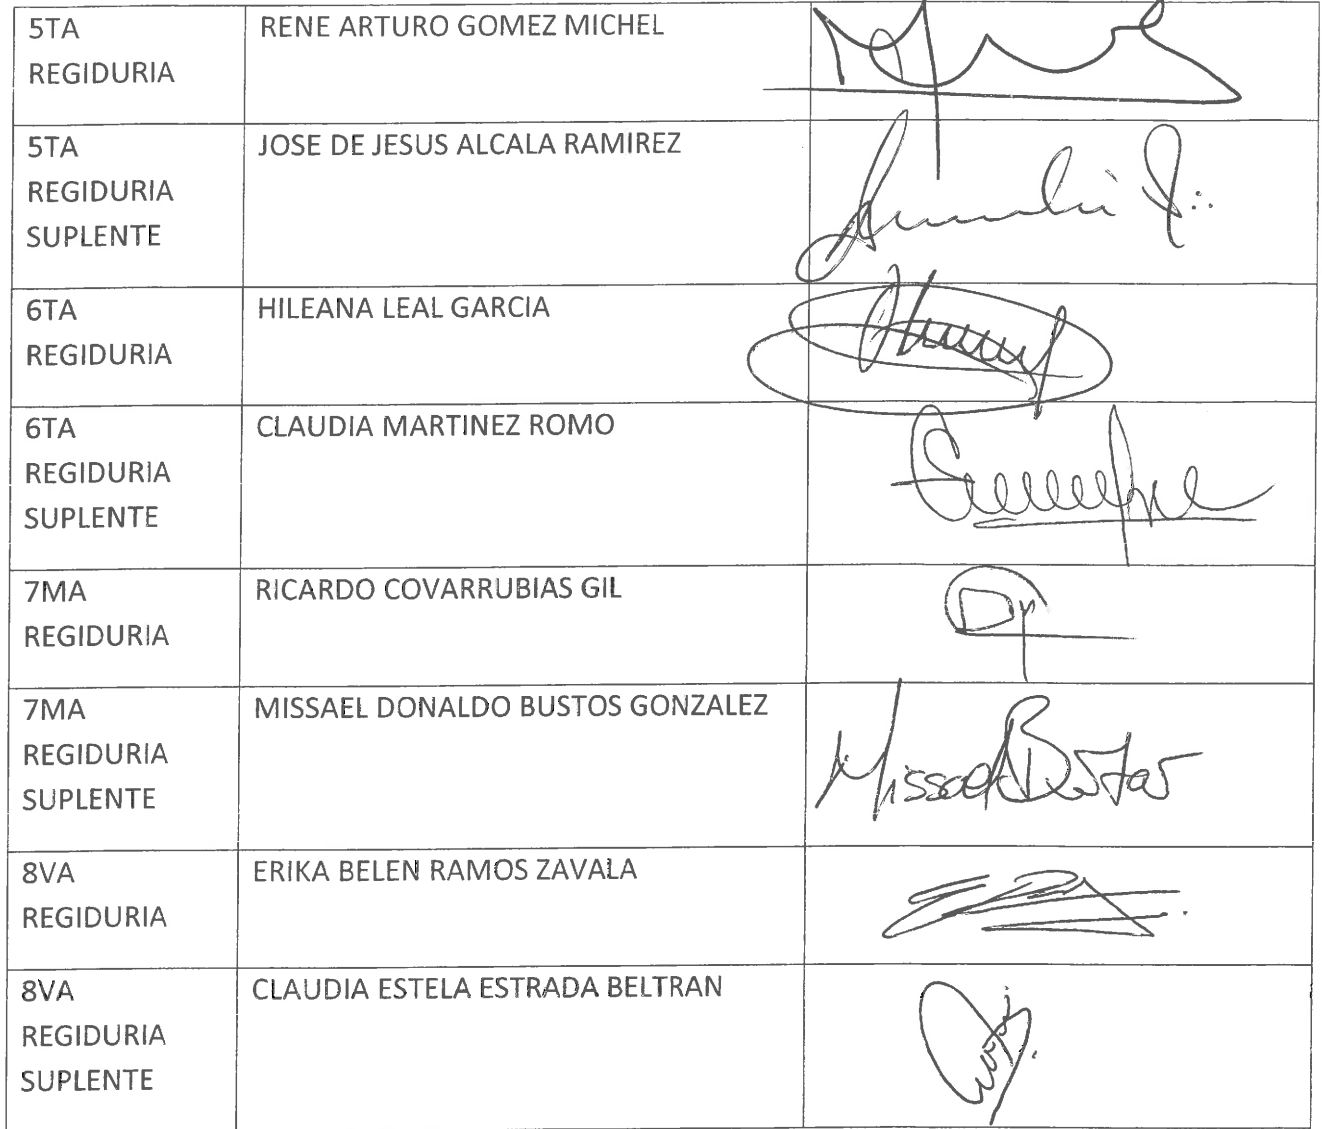 5TA
REGIDURIA
RENE ARTURO GOMEZ MICHEL
5TA
REGIDURIA
SUPLENTE
JOSE DE JESUS ALCALA RAMIREZ
6TA
REGIDURIA
HILEANA LEAL GARCIA
6TA
REGIDURIA
SUPLENTE
CLAUDIA MARTINEZ ROMO
7MA
REGIDURIA
RICARDO COVARRUBIAS GIL
7MA
REGIDURIA
SUPLENTE
MISSAEL DONALDO BUSTOS GONZALEZ
Missael Bustos
8VA
REGIDURIA
ERIKA BELEN RAMOS ZAVALA
8VA
REGIDURIA
SUPLENTE
CLAUDIA ESTELA ESTRADA BELTRAN